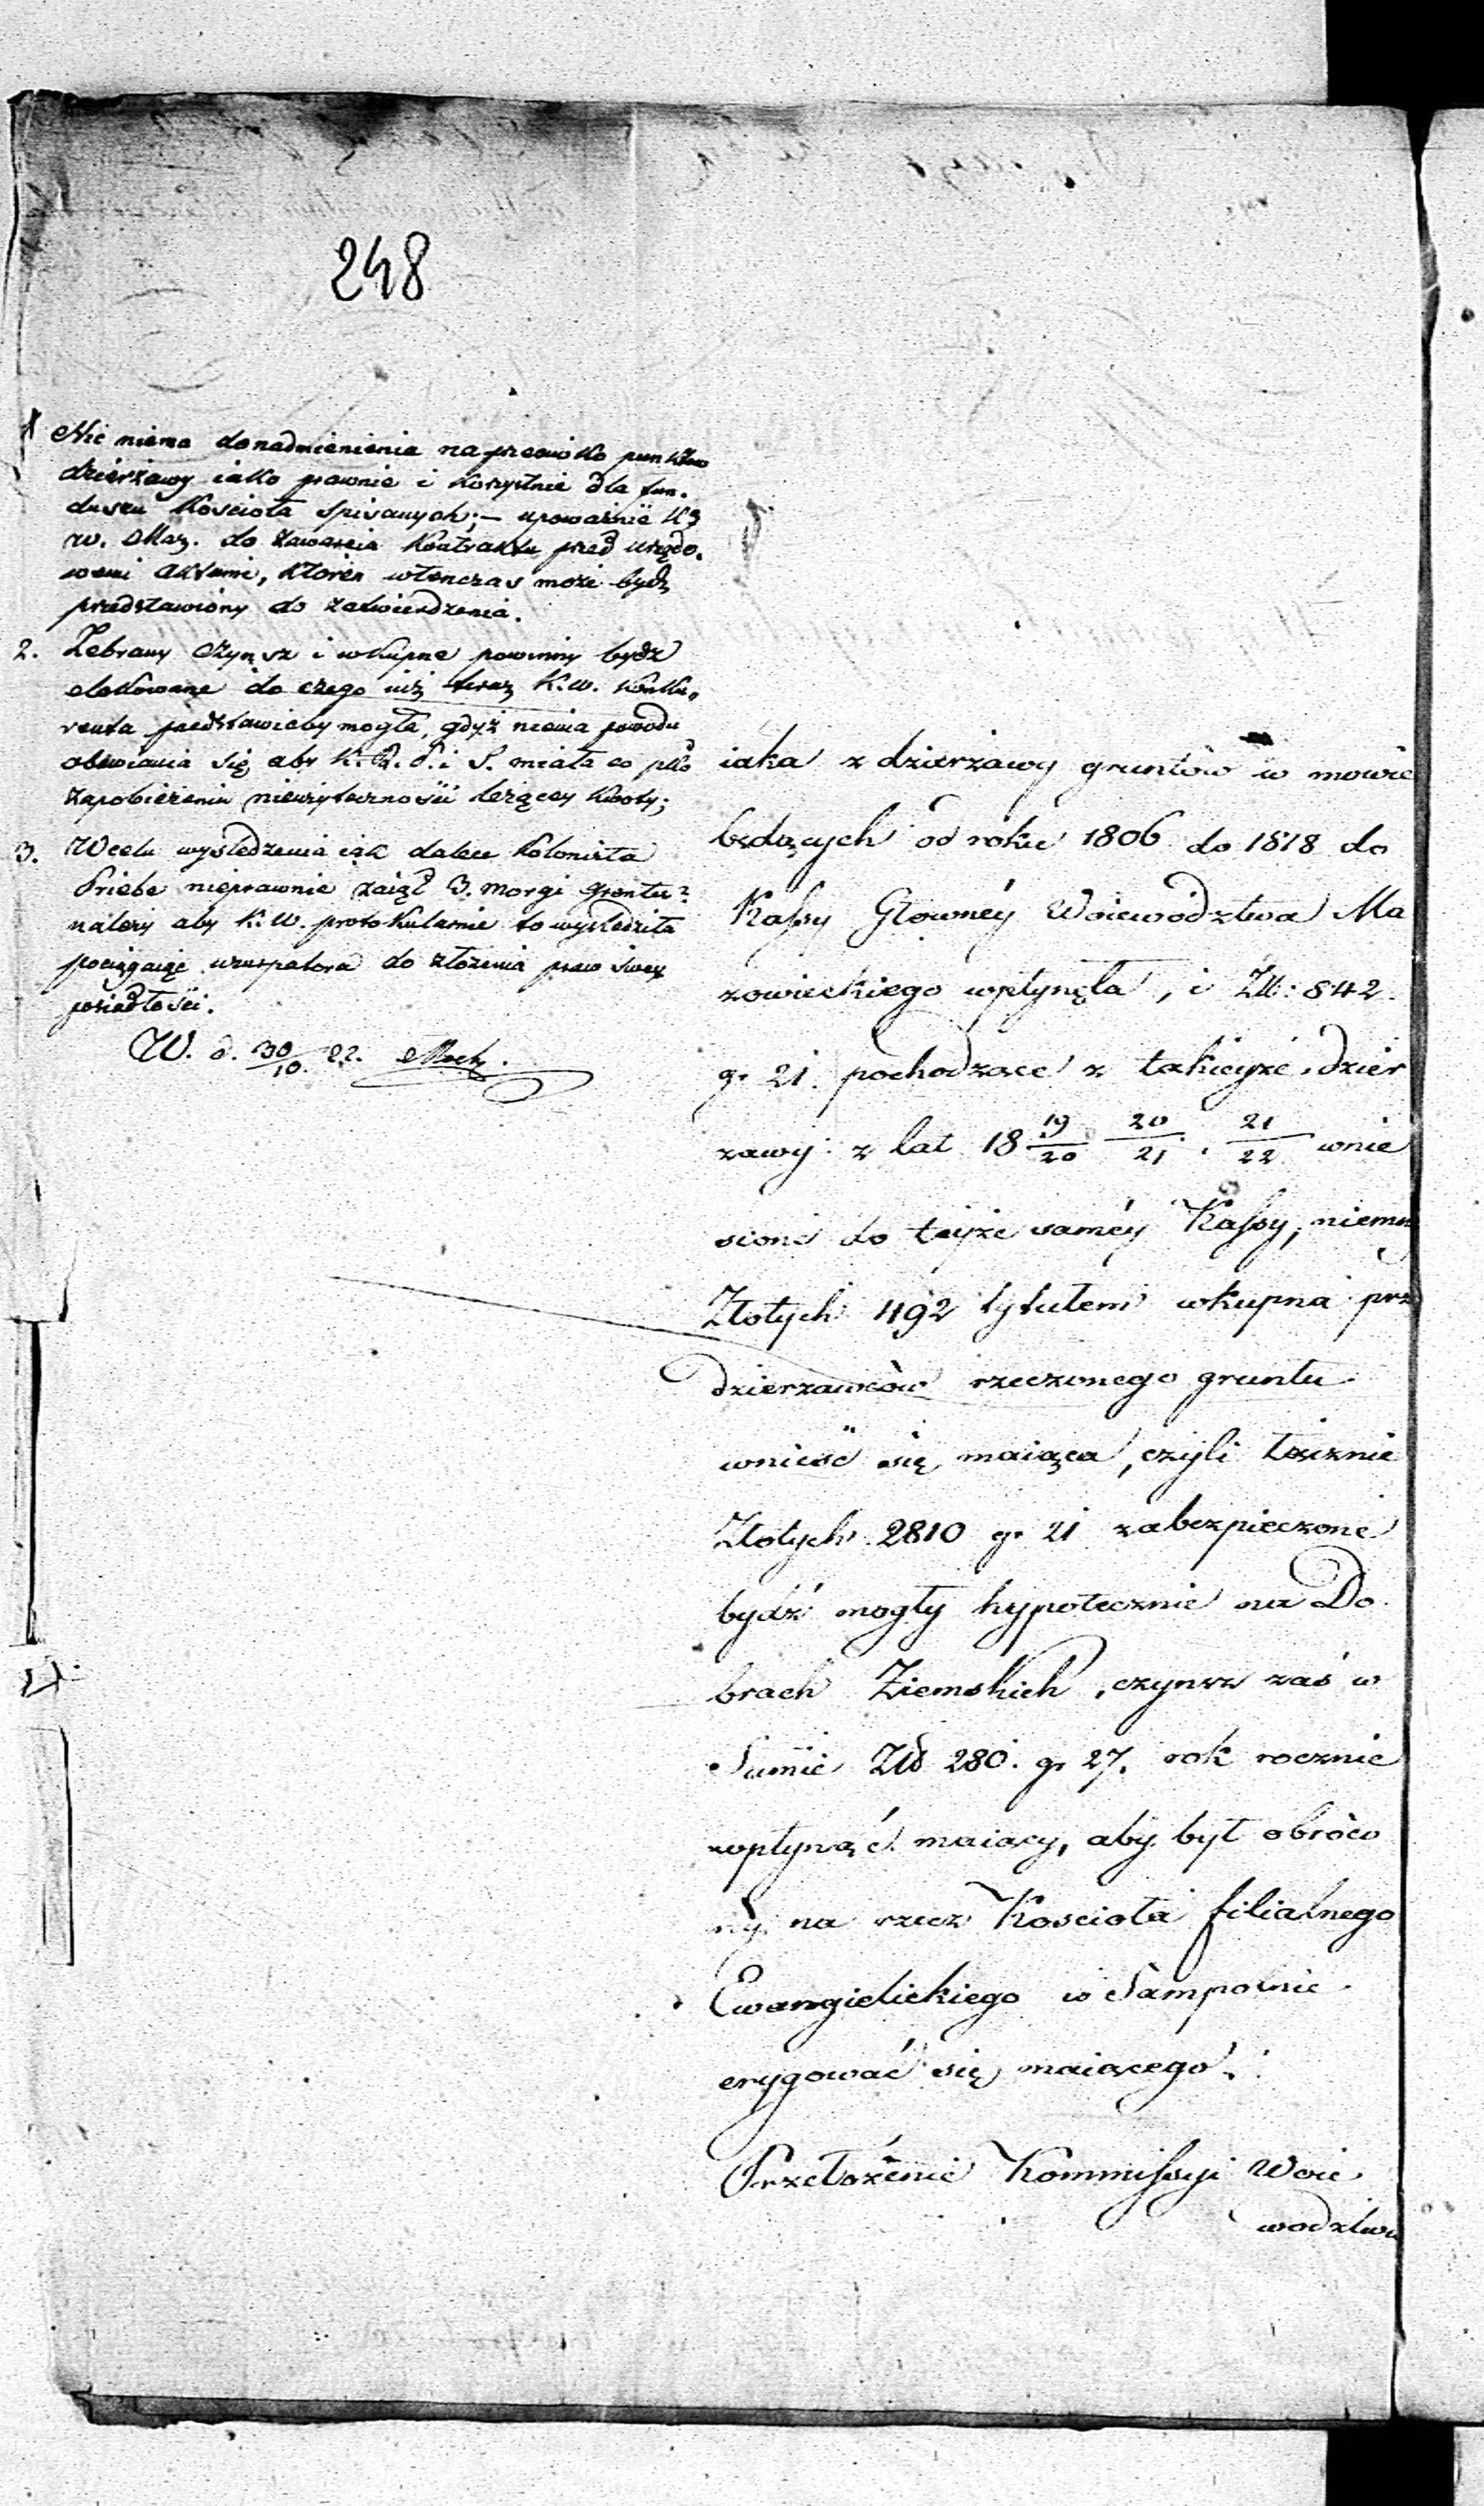 248
1 Nic niema do nadmienienia na przeciwko punktów
dzierżawy iako prawnie i korzystnie dla fun-
duszu Kościoła spisanych; – upoważnić K
w. Maz. do zawarcia Kontraktu przed urzędo-
wemi Aktami, któren wtenczas może bydź
przedstawióny do zatwierdzenia.
2. Zebrany czynsz i wkupne powinny bydź
elokowane do czego iuż teraz K. W. konku-
renta przedstawićby mogła, gdyż niema powodu
obawiania się aby K. R. P. i S. miała co
zapobieżeniu nieużyteczności leżącey kwoty;
3. W celu wyśledzenia iak dalece kolonista
Priebe nieprawnie zaiął 3. morgi gruntu?
należy aby K. W. protokularnie to wyśledziła
pociągaiąc uzurpatora do złożenia praw swey
posiadłości.
W. d. 30/10. 22.
iaka z dzierżawy gruntów w mowie
będących od roku 1806 do 1818 do
Kassy Głownéy Woiewództwa Ma
zowieckiego wpłynęła, i Zł: 842.
gr 21. pochodzące z takieyże dzier
zawy z lat 18 19/20 20/21. 21/22 wnie
sione do teyże saméy Kassy, niemn
Złotych 492 tytułem wkupna prz
dzierzawców rzeczonego gruntu
wnieść się maiąca, czyli łącznie
Złotych 2810 gr 21 zabezpieczone
bydź mogły hypotecznie na Do
brach Ziemskich, czynsz zaś w
Summie Złp 280. gr 27. rok rocznie
wpłynąć maiący, aby był obróco
ny na rzecz Kościoła filialnego
Ewangielickiego w Sampolnie
erygować się maiącego.
Przełożenie Kommissyi Woie
wodztwa